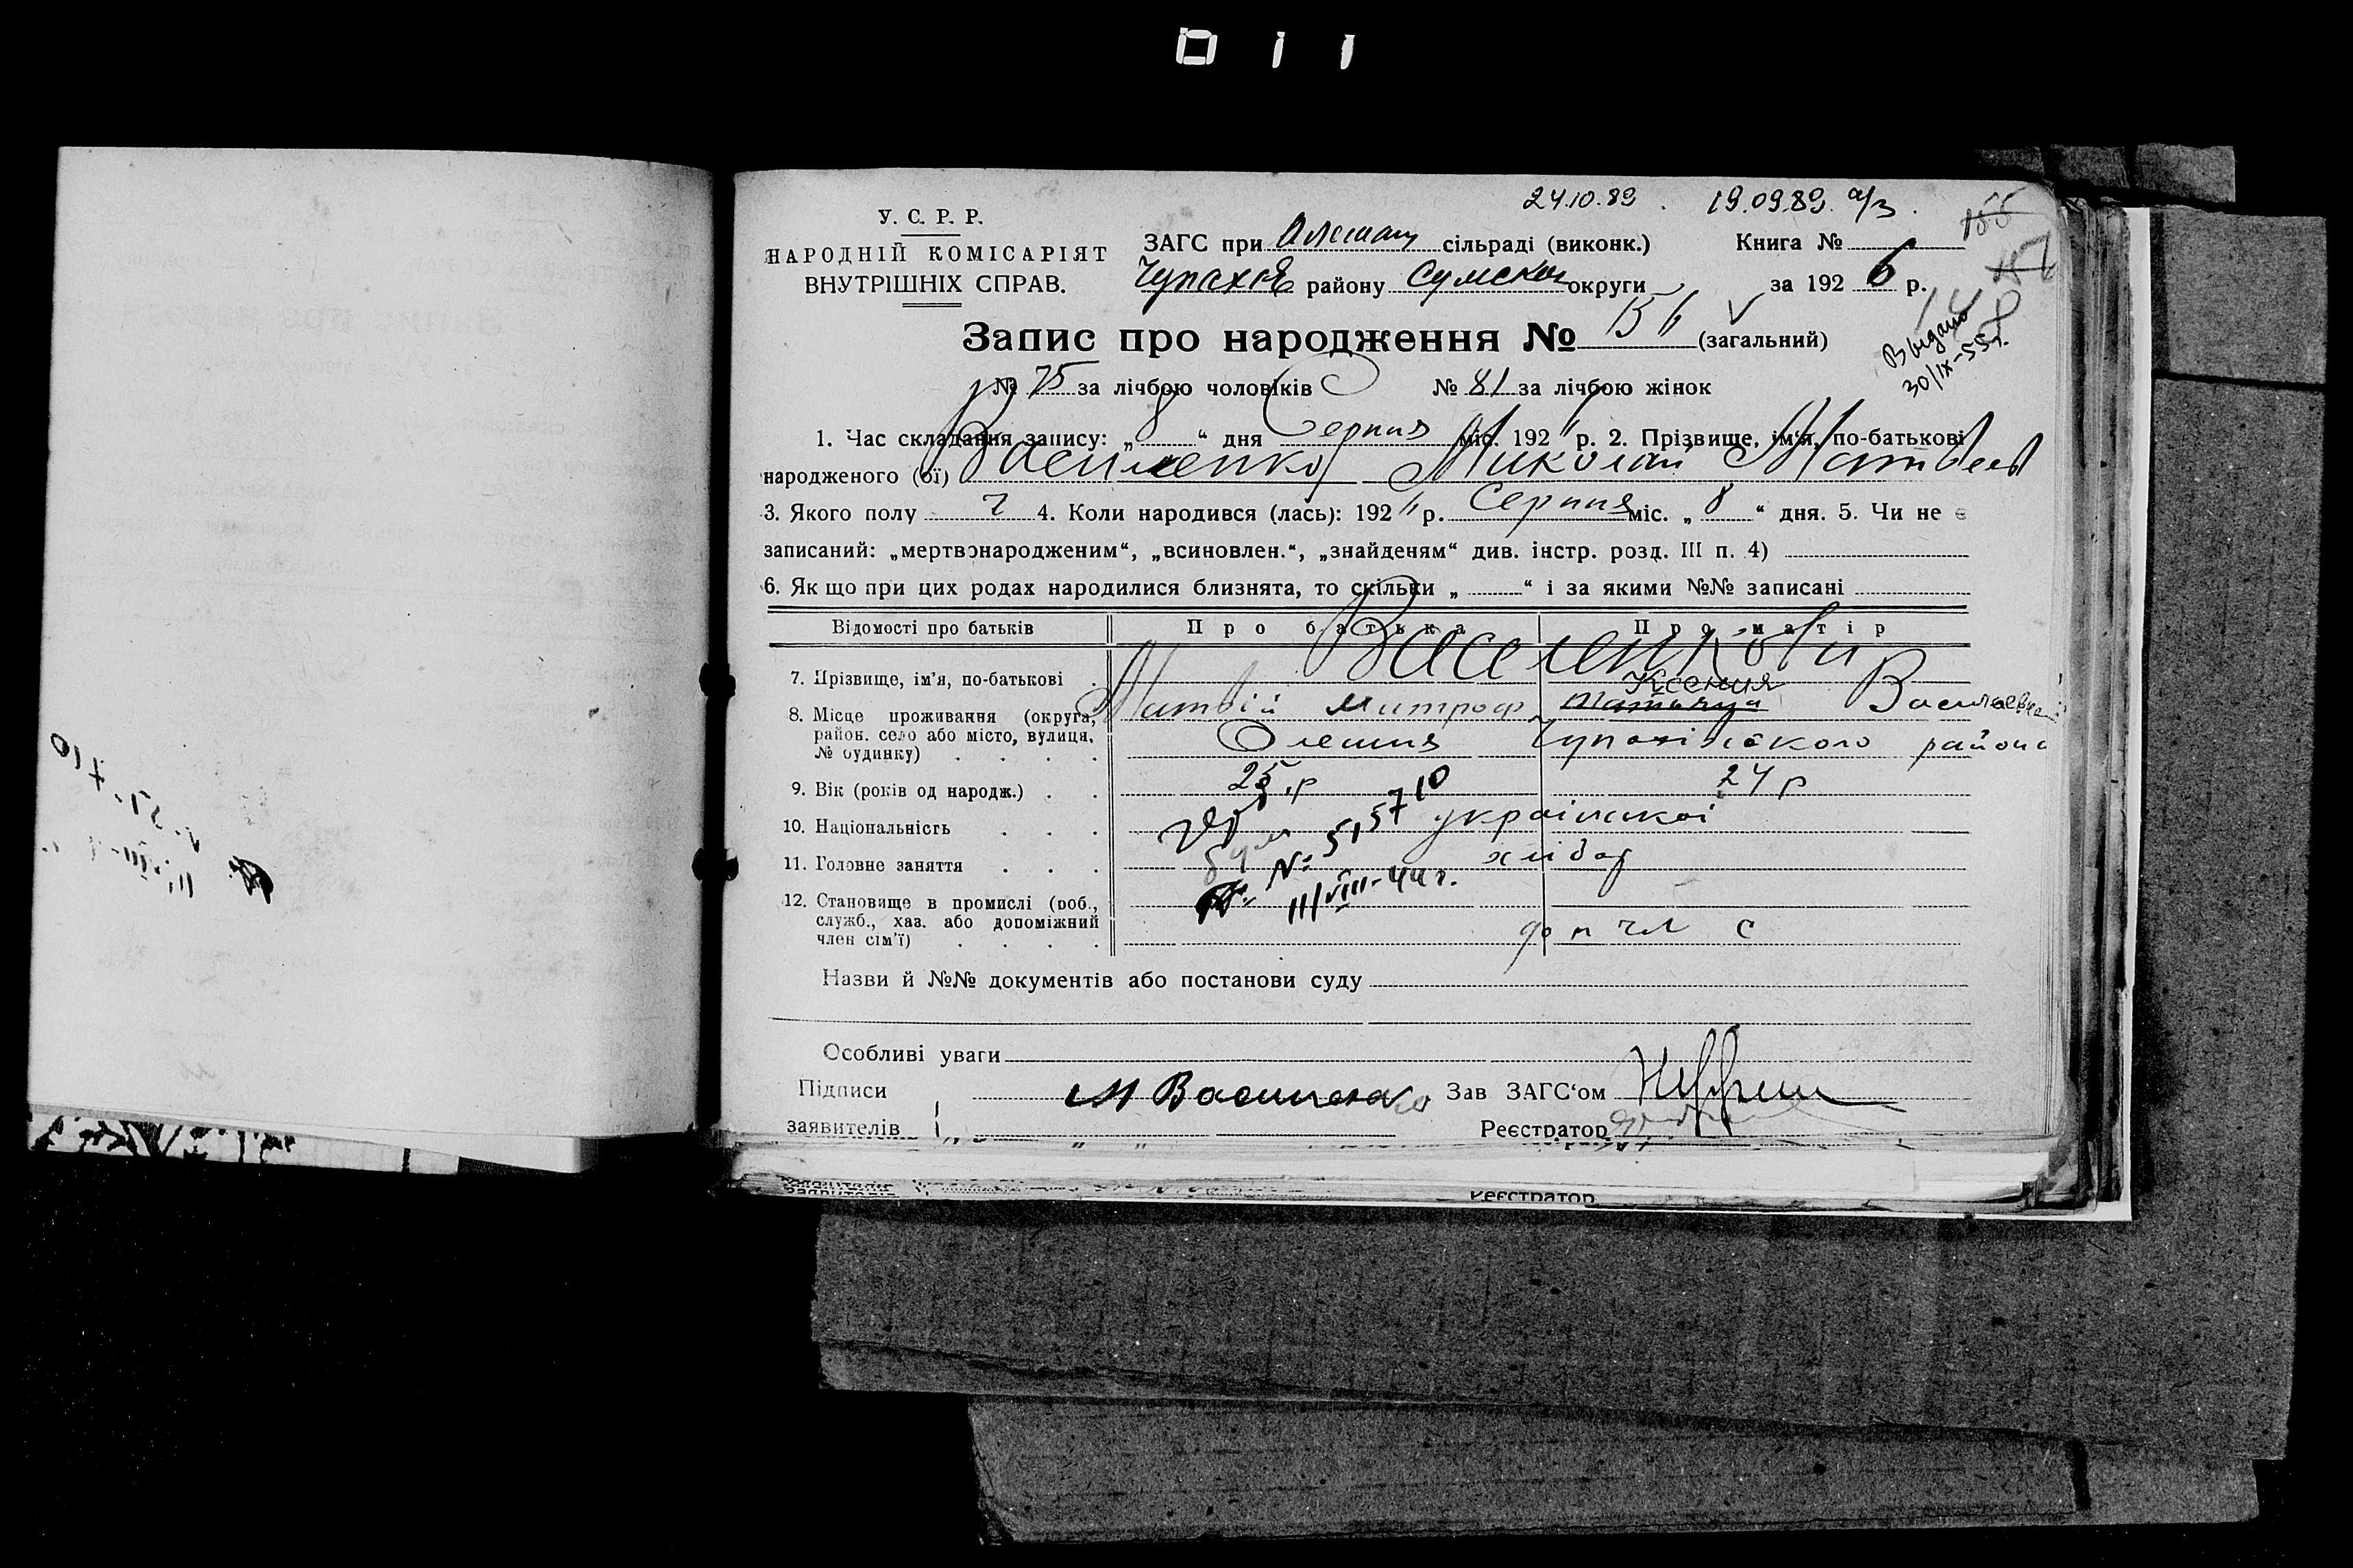 011
24.10.89. 19.09.89.
У. С. Р. Р.
НАРОДНІЙ КОМІСАРІЯТ
ВНУТРІШНІХ СПРАВ.
ЗАГС при Олешан сільраді (виконк.) Книга №
Чупахів району Сумськ округи за 192 6 р.
Видано
30/IX-55г.
Запис про народження № 156 (загальний)
№ 75 за лічбою чоловіків № 81 за лічбою жінок
1. Час складання запису: „ 8 “ дня Серпня міс. 192 „ р. 2. Прізвище, ім'я, по-батькові
народженого (ої) Василенко Миколай Матвеев
3. Якого полу ч 4. Коли народився (лась): 192 „ р. Серпня міс. „ 8 “ дня. 5. Чи не є
записаний: „мертвонародженим“, „всиновлен.“, „знайденям“ див. інстр. розд. III п. 4)
6. Як що при цих родах народилися близнята, то скільки „ “ і за якими №№ записані
Відомості про батьків Про батька Про матір
Василенкови
7. Прізвище, ім'я, по-батькові .
Ксения
Матвій Митроф Татьяна Васильевна
8. Місце проживання (округа, район. село або місто, вулиця, № будинку) . . . . Олешня Чупахівського района
9. Вік (років од народж.) . . 25 р 24 р
10. Національність . . . української
№ 515710
11. Головне заняття . . . хлібор
III/VIII-44г.
12. Становище в промислі (роб., служб., хаз. або допоміжний член сім'ї) . . . . доп чл с
Назви й №№ документів або постанови суду
Особливі уваги
Підписи М Василенко Зав ЗАГС‘ом
заявителів Реєстратор
Реєстратор